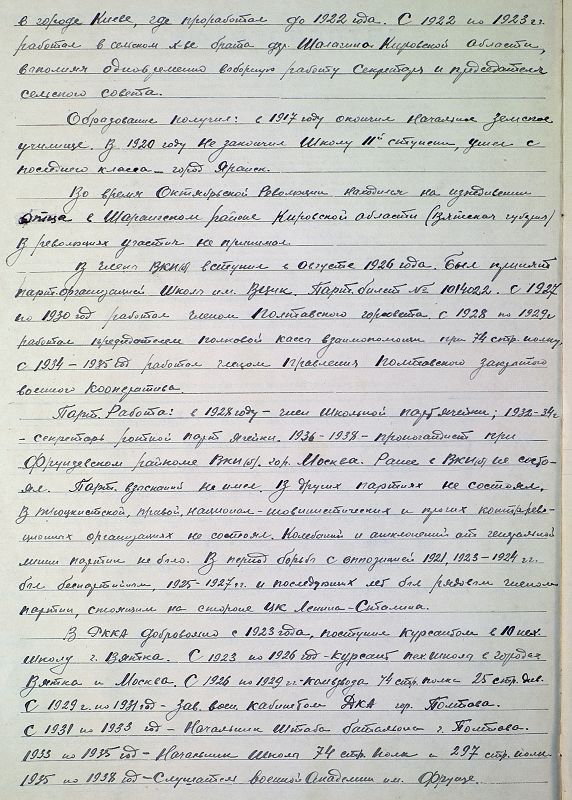 в городе Киеве, где проработал до 1922 года. С 1922 по 1923 гг.
работал в сельском х-ве брата дер. Шалагина Кировской области,
выполняя одновременно выборную работу Секретаря и председателя
сельского совета.
Образование получил: в 1917 году окончил Начальное земское
училище. В 1920 году не закончил Школу II й ступени, ушел с
последнего класса – город Яранск.
Во время Октябрьской Революции находился на иждивении
отца в районе Кировской области (Вятская губерния)
В революциях участия не принимал.
В члены ВКП(б) вступил в Августе 1926 года. Был принят
парт.организацией Школы им. ВЦИК. Парт. билет № 1014022. С 1927
по 1930 год работал членом Полтавского горсовета. С 1928 по 1929 г
работал председателем полковой кассы взаимопомощи при 74 стр. полку,
с 1934 – 1935 год работал членом Правления Полтавского закрытого
военного Кооператива.
Парт. Работа: в 1928 году – член Школьной парт ячейки; 1932-34 г
– секретарь ротной парт ячейки. 1936 – 1938 – пропагандист при
Фрунзевском райкоме ВКП(б). гор. Москва. Ранее в ВКП(б) не состо-
ял. Парт. взысканий не имел. В других партиях не состоял,
В троцкистской, правой, национал-шовинистических и прочих контррево-
ционных организациях не состоял. Колебаний и отклонений от генеральной
линии партии не было. В период борьбы с оппозицией 1921, 1923 – 1924 гг.
был беспартийным, 1925 – 1927 гг. и последующих лет был рядовым членом
партии, стоял на стороне ЦК Ленина – Сталина.
В РККА добровольно с 1923 года, поступил Курсантом в 10 пех.
школу г. Вятка. С 1923 по 1926 год – курсант пех. школы в городах
Вятка и Москва. С 1926 по 1929 г. – комвзвода 74 стр. полка 25 стр. див.
С 1929 г. по 1931 год – Зав. воен. кабинетом ДКА гор. Полтава.
С 1931 по 1933 год – Начальник Штаба батальона г. Полтава.
1933 по 1935 год – Начальник Школы 74 стр. полк и 297 стр. полк
1935 по 1938 год – Слушатель военной Академии им. Фрунзе.